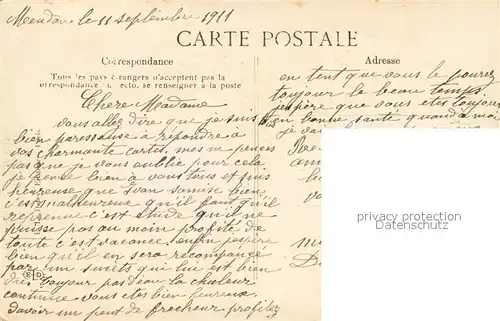 Meudon le 11 septembre 1911
CARTE POSTALE
Correspondance
Tous les pays étrangers n'acceptent pas la
correspondance au recto, se renseigner à la poste
Chere Madame
vous allez dire que je suis
bien paresseuse a repondre a
vos charmante cartes, mes ne pences
pas que je vous oublie pour cela
je pence bien à vous tous et suis
heureuse que Ivan s'amise bien
c'est malheureux qu'il faut qu'il
reprenne c'est etude qu'il ne
puisse pas au moin profité de
toute c'est vacance enfin j'espère
bien qu'il en sera recompancé
par un succès qui lui est bien
du toujour pas d'eau la chaleur
continue vous etes bien heureux
d'avoir un peut de frecheur profitez
Adresse
en tent que vous le pourez
toujour le beau temps.
j'espère que vous etes toujour
en bonne santé quand a moi
je va
privacy protection
Datenschutz